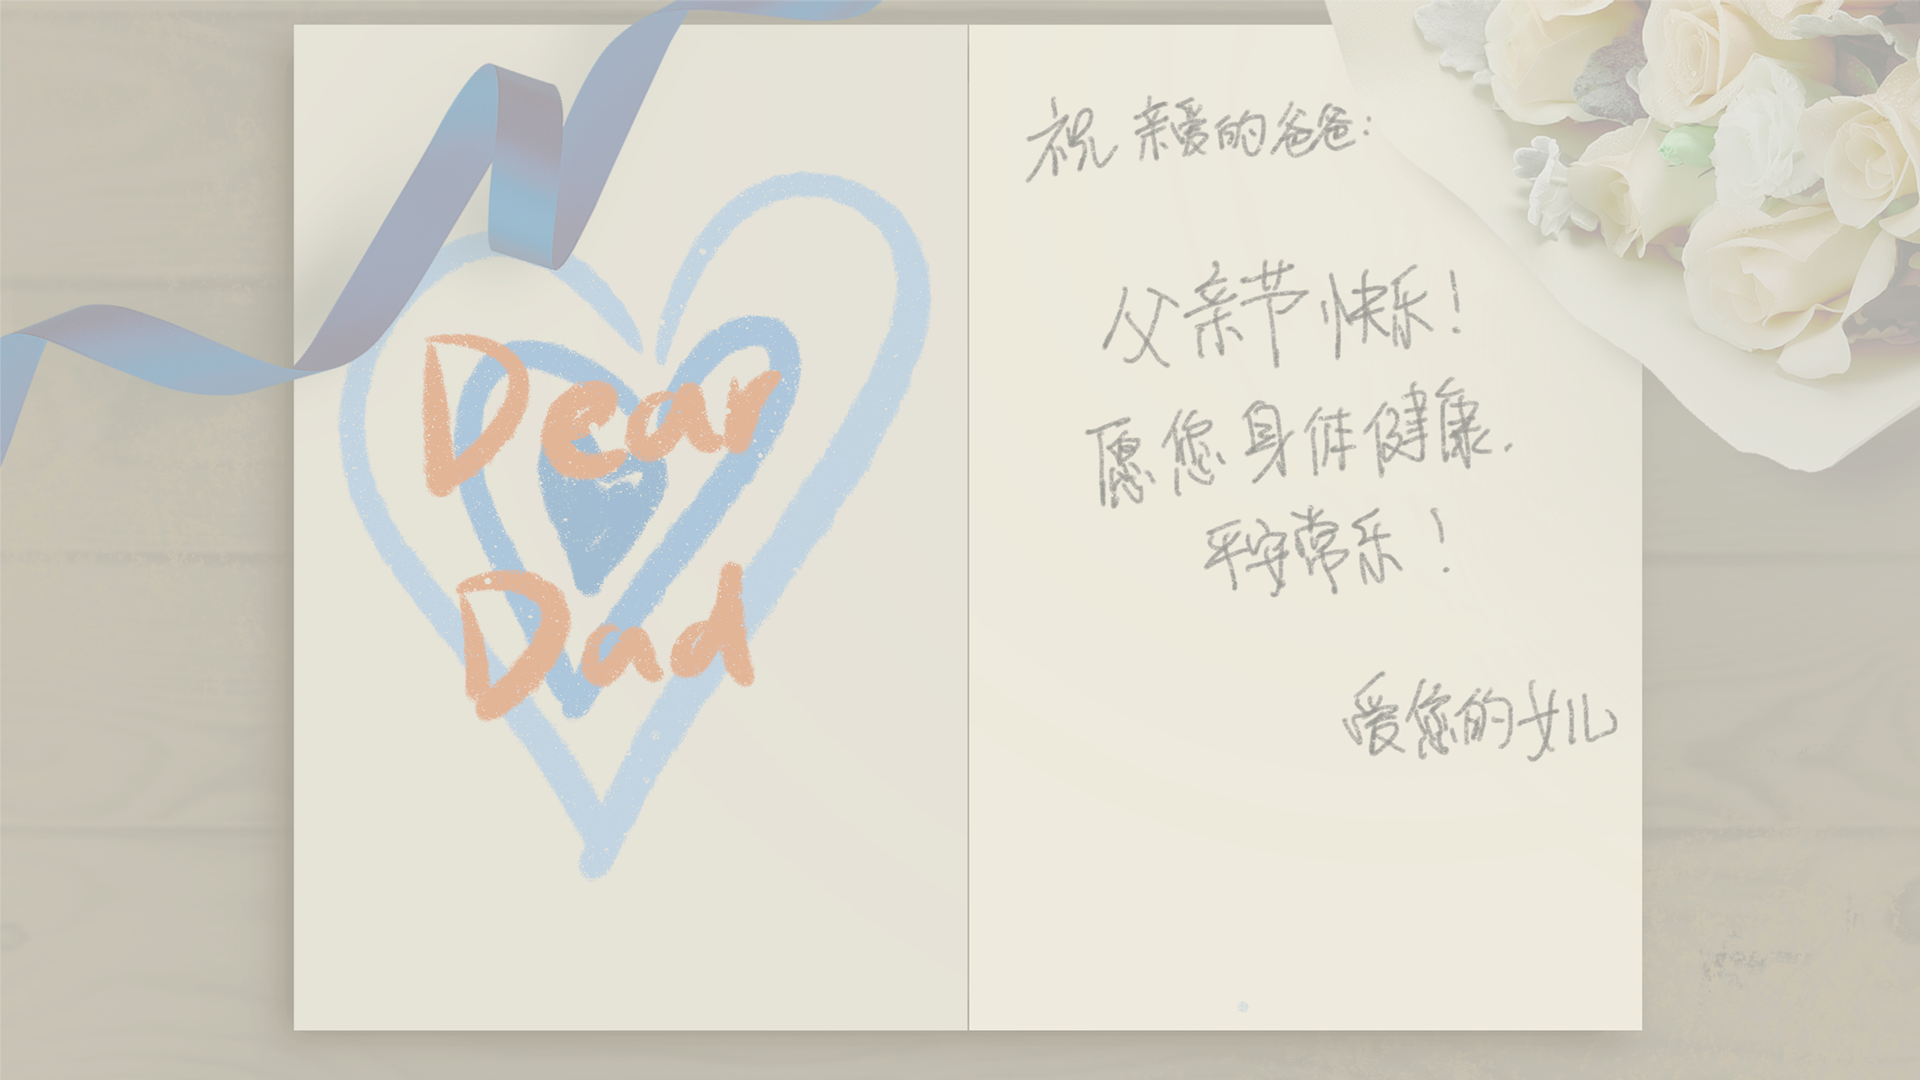 Dear
Dad
祝亲爱的爸爸:
父亲节快乐!
愿您身体健康.
平安常乐!
爱您的女儿